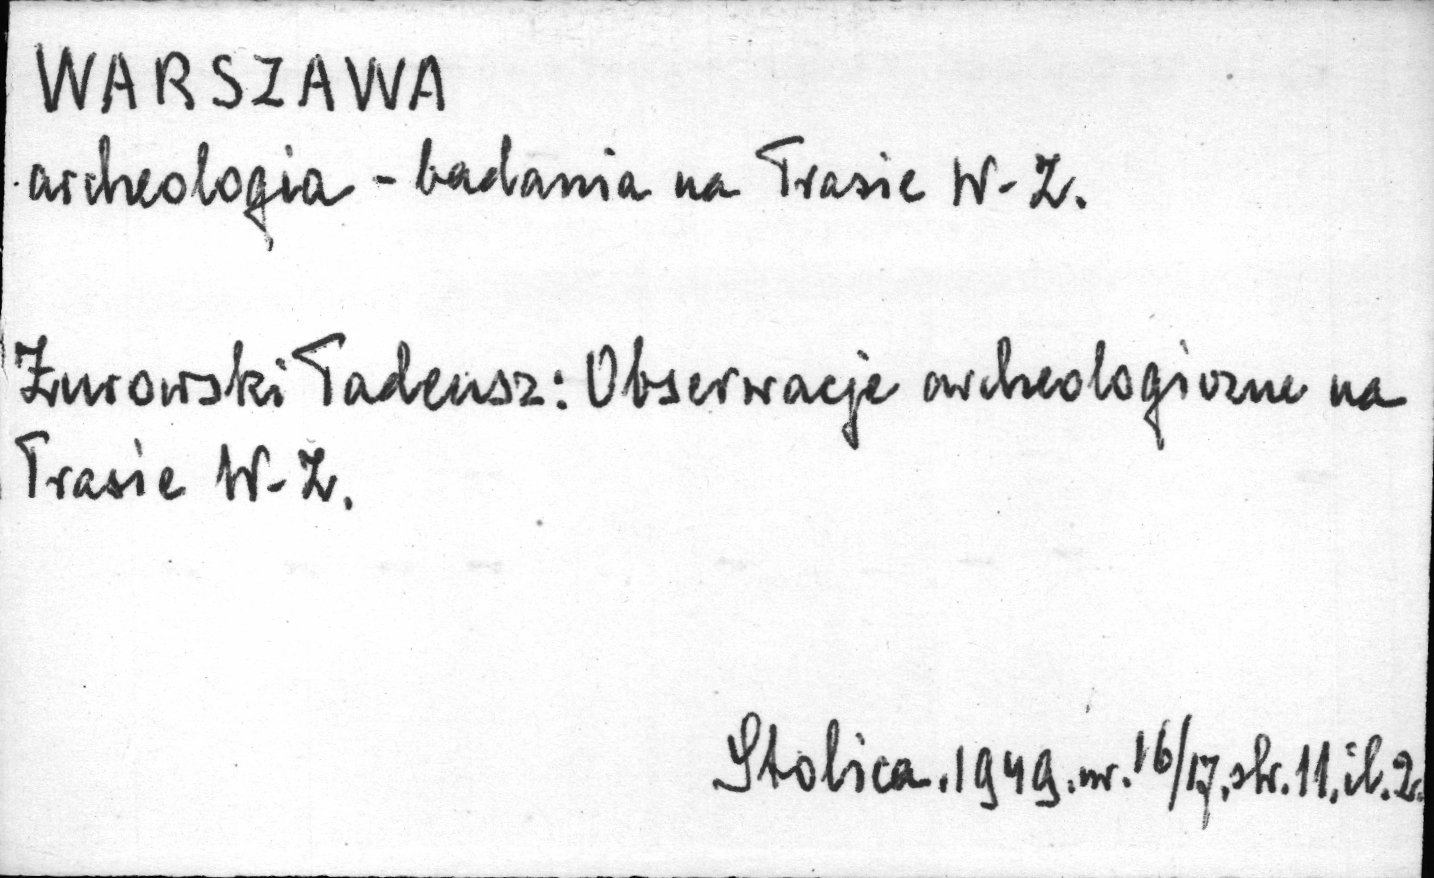 WARSZAWA
archeologia - badania na Trasie W-Z.
Żurowski Tadeusz: Obserwacje archeologiczne na
Trasie W-Z.
Stolica. 1949. nr. 16/17, str. 11, il. 2.